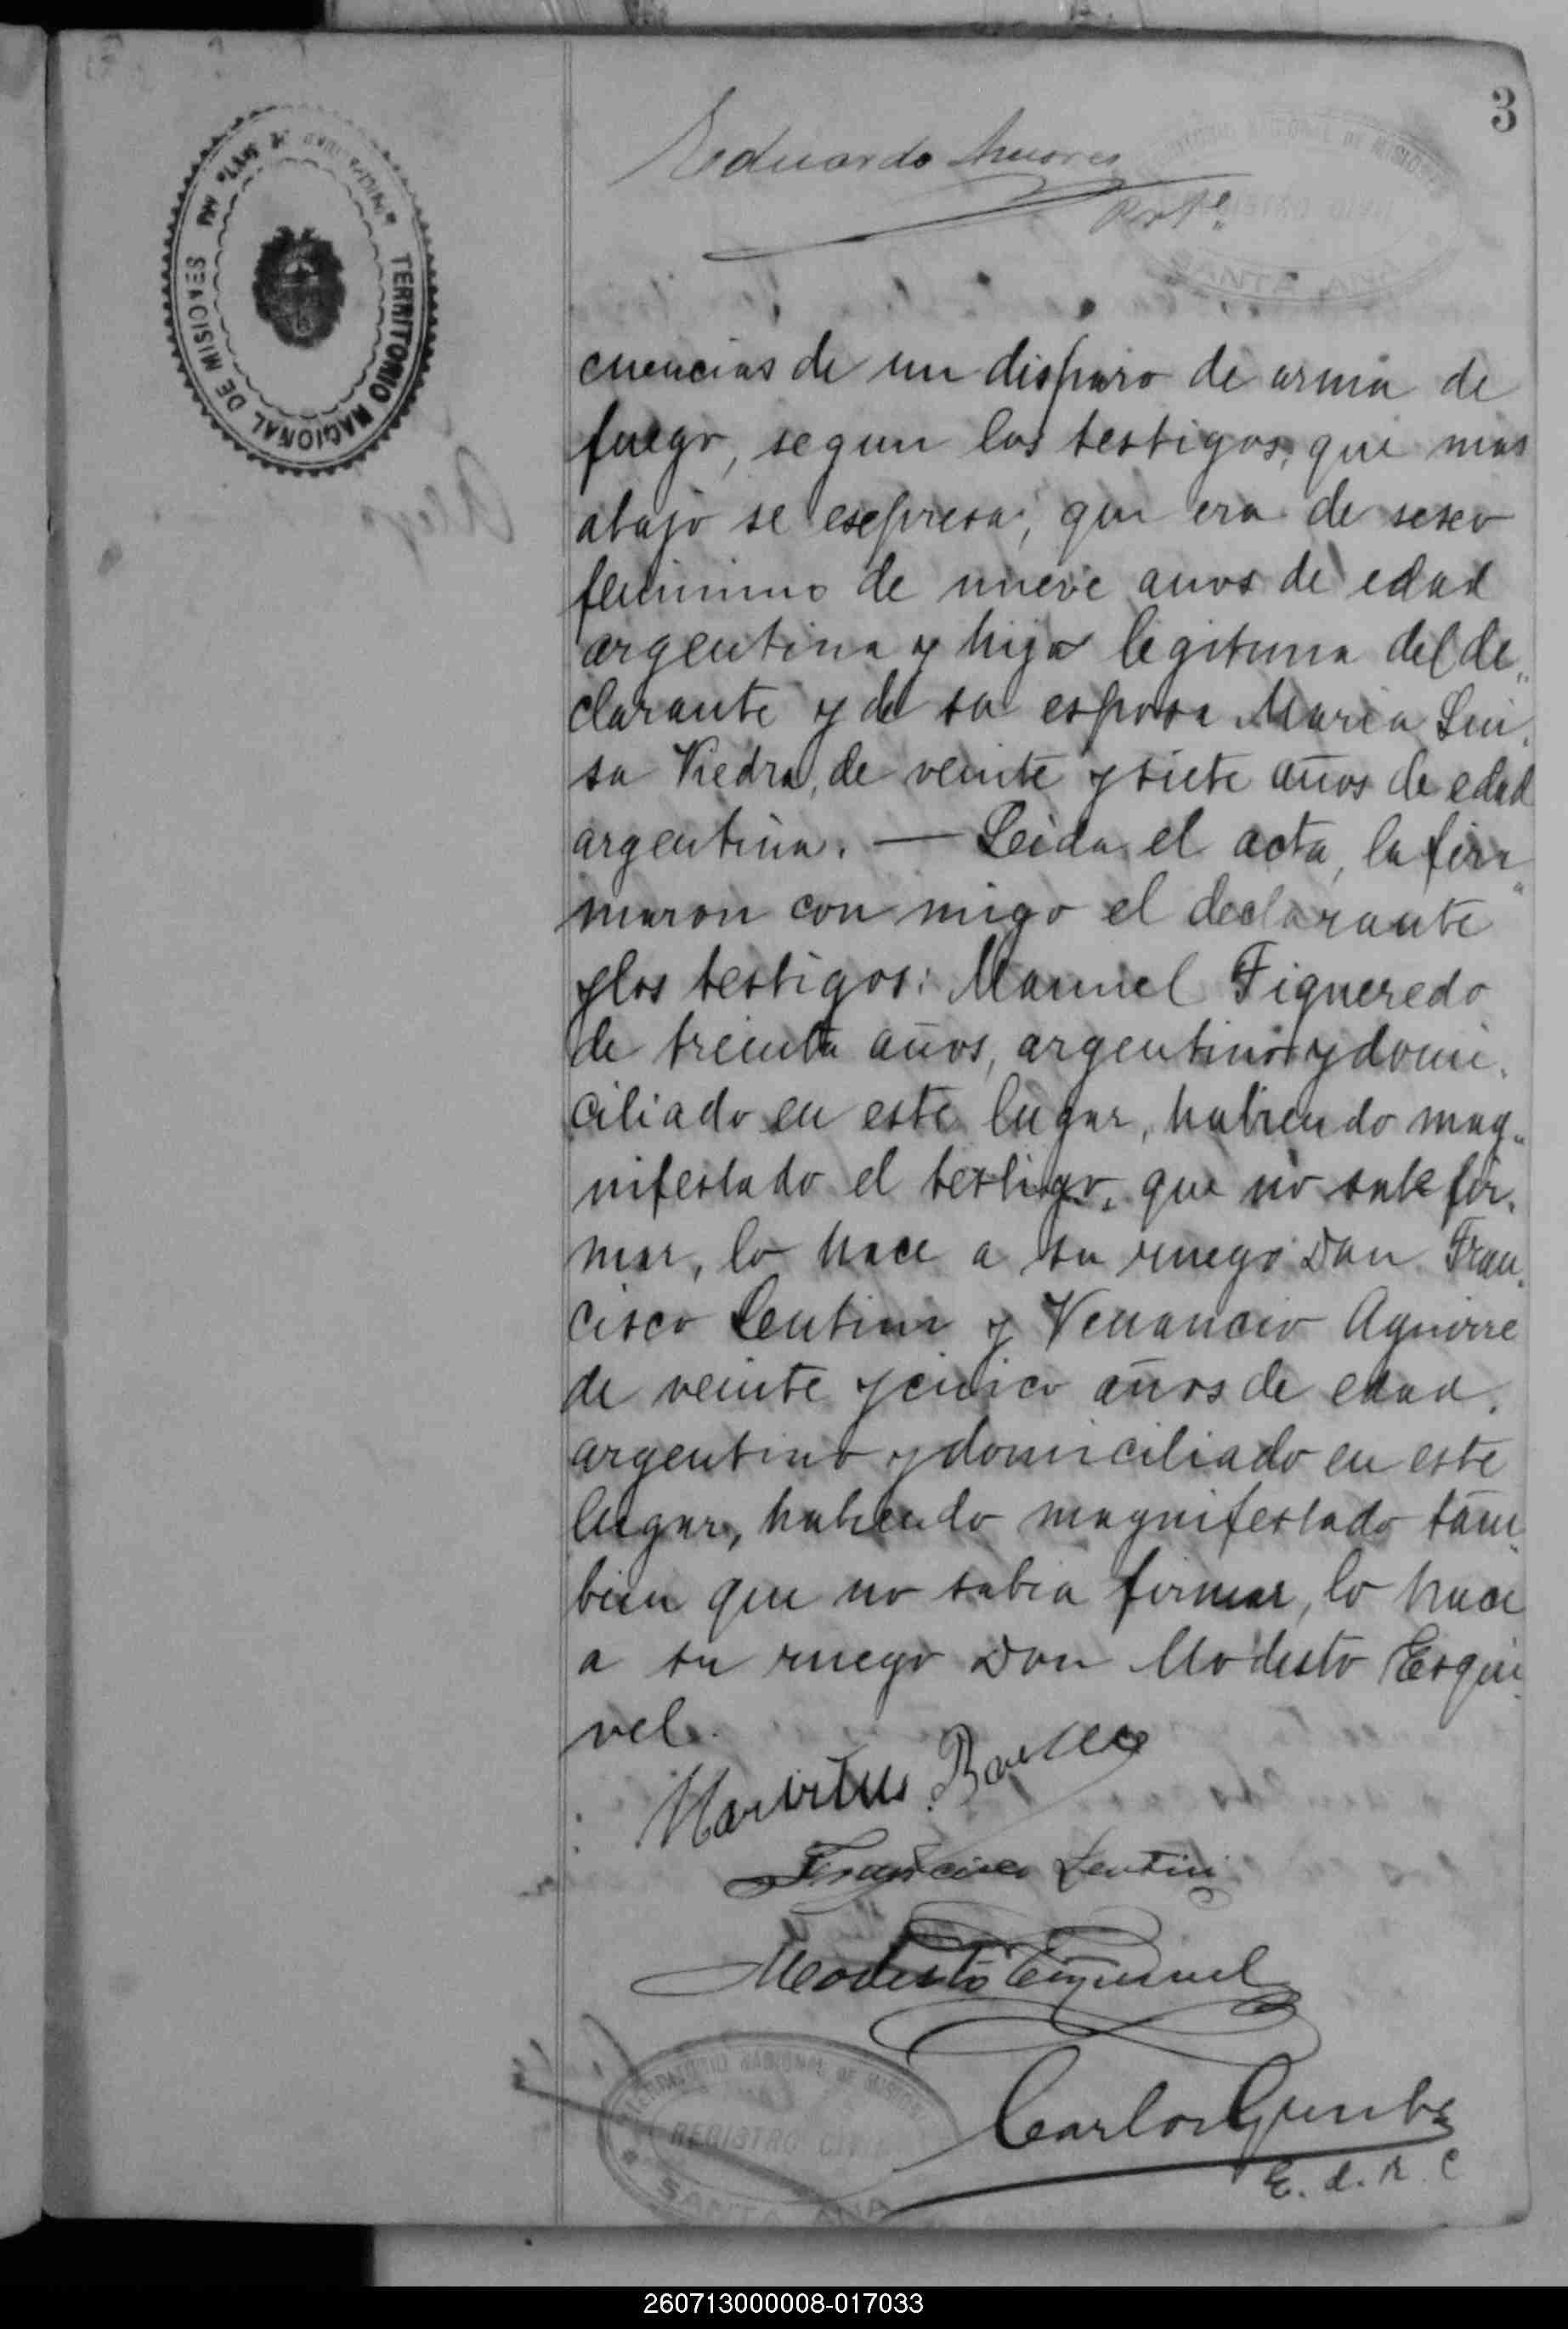 3
Eduardo
TERRITORIO NACIONAL DE MISIONES
cuencias de un disparo de arma de
fuego, segun los testigos, que mas
abajo se esepresa, que era de seseo
feminino de nueve anos de edad
argentina y hija legitima del de„
clarante y de su esposa Maria Lui„
sa Viedra, de veinte y siete años de edad
argentina. — Leida el acta, la fir„
maron con migo el declarante
y los testigos: Manuel Figueredo
de treinta años, argentino y domi„
ciliado en este lugar, habiendo mag„
nifestado el testigo, que no sabe fir„
mar, lo hace a su ruego Don Fran„
cisco Lentini y Venancio Aguirre
de veinte y cinco años de edad,
argentino y domiciliado en este
lugar, habiendo magnifestado tam„
bien que no sabia firmar, lo hace
a su ruego Don Modesto Esqui„
vel.
Francisco Lentini
Modesto Esquivel
TERRITORIO NACIONAL DE MISIONES
REGISTRO CIVIL
SANTA ANA
Carlos
E. d. R. C
260713000008-017033